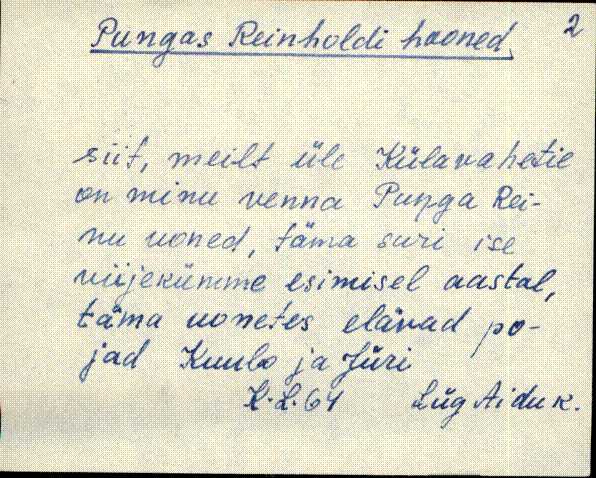 2
Pungas Reinholdi hooned
siit, meilt üle Külavahetie
on minu venna Punga Rei-
nu uoned, täma suri ise
viijekümme esimisel aastal,
täma uonetes elävad po-
jad Kuulo ja Jüri
K. L. 64 Lüg Aidu k.